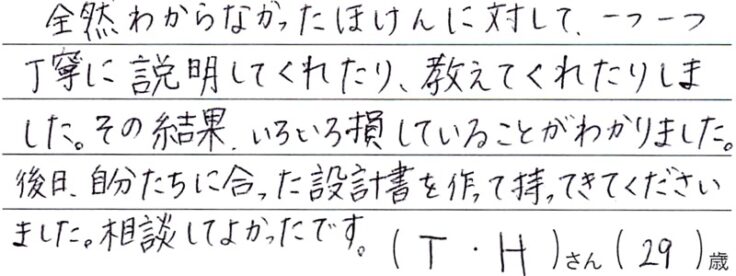 全然わからなかったほけんに対して、一つ一つ
丁寧に説明してくれたり、教えてくれたりしま
した。その結果、いろいろ損していることがわかりました。
後日、自分たちに合った設計書を作って持ってきてください
ました。相談してよかったです。(T・H)さん(29)歳